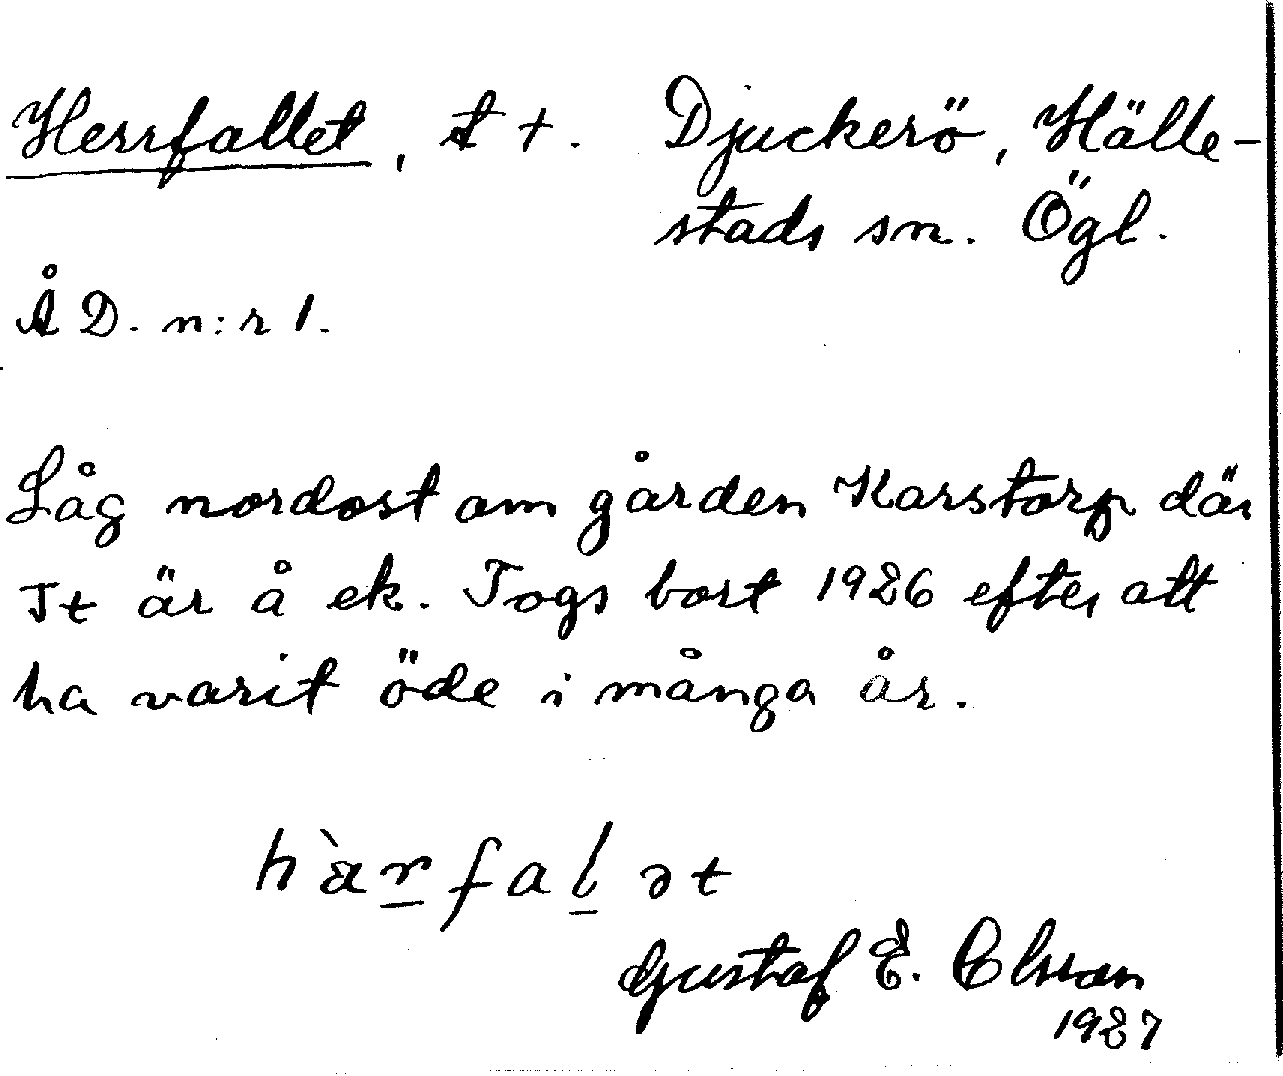 Herrfallet, t +. Djuckerö, Hälle-
stads sn. Ögl.
ÅD. n:r 1.
Låg nordost om gården Karstorp där
Tt är å ek. Togs bort 1926 efter att
ha varit öde i många år.
h`ärfalət
Gustaf E. Olsson
1927